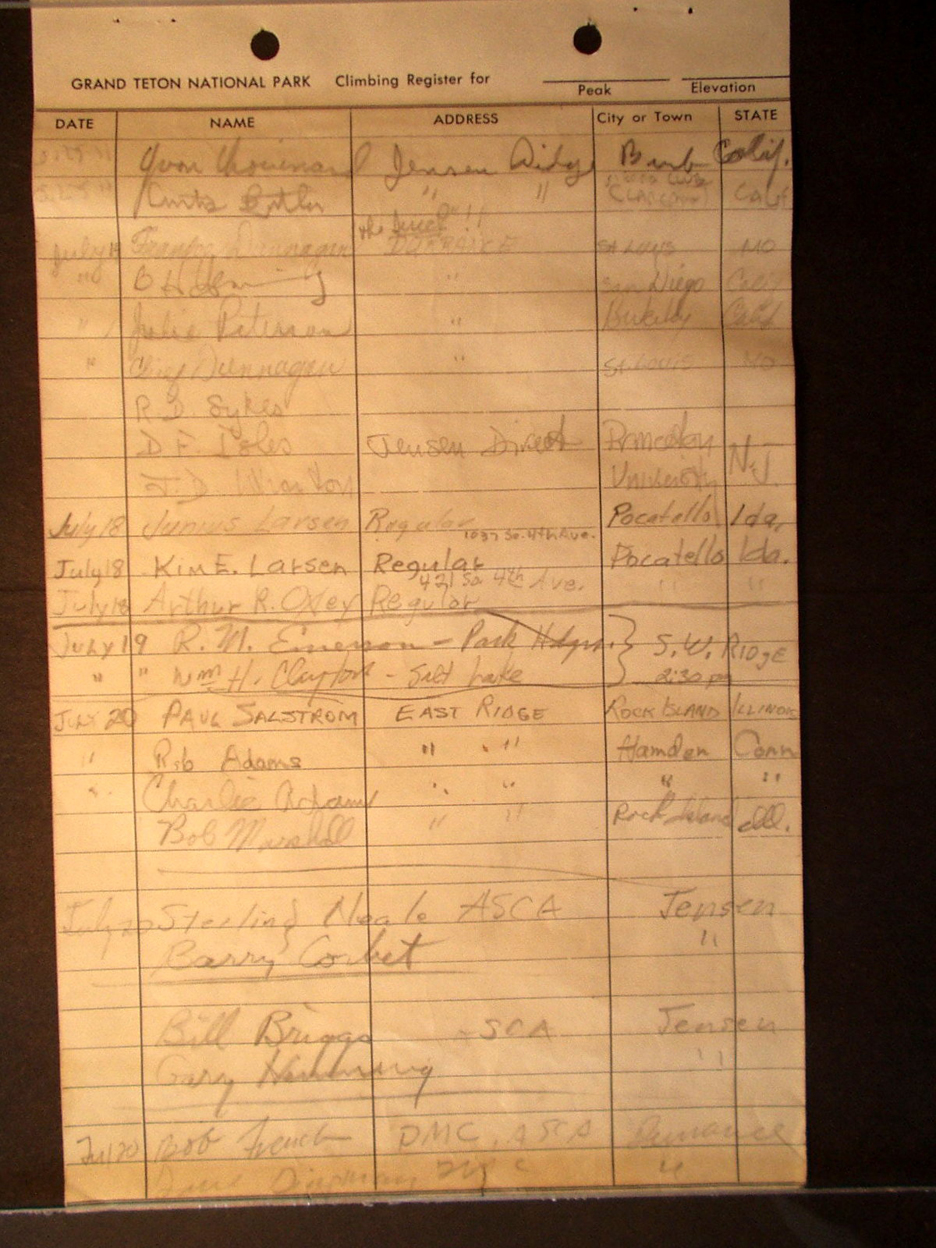 GRAND TETON NATIONAL PARK Climbing Register for
Peak Elevation
DATE NAME ADDRESS City or Town STATE
Yvon Chouinard Jensen Ridge Burb Calif.
" " Calif
July St Louis MO
" " San Diego Calif
" Julie Peterson " Calif
" Dunnagan " St. Louis MO
R. D. Sykes
D. F. Jensen Direct Princeton
University N.J.
J. D.
July 18 Junius Larsen Regular Pocatello Ida.
1037 So. 4th Ave.
July 18 Kim E. Larsen Regular Pocatello Ida.
421 So. 4th Ave.
July 18 Arthur R. Oxley Regular " "
July 19 R. M. Emerson - Park Hdqrs. } S. W. RIDGE
" " Wm H. Clayton - Salt Lake 2:30 pm
July 20 PAUL SALSTROM EAST RIDGE ROCK ISLAND ILLINOIS
" Rob Adams " " Hamden Conn
" Charlie Adams " " " "
Bob Marshall " " Rock Island Ill.
July 20 Sterling Neale ASCA Jensen
Barry Corbet "
Bill Briggs ASCA Jensen
Gary Hemming "
Jul 20 Bob French DMC, ASCA
"